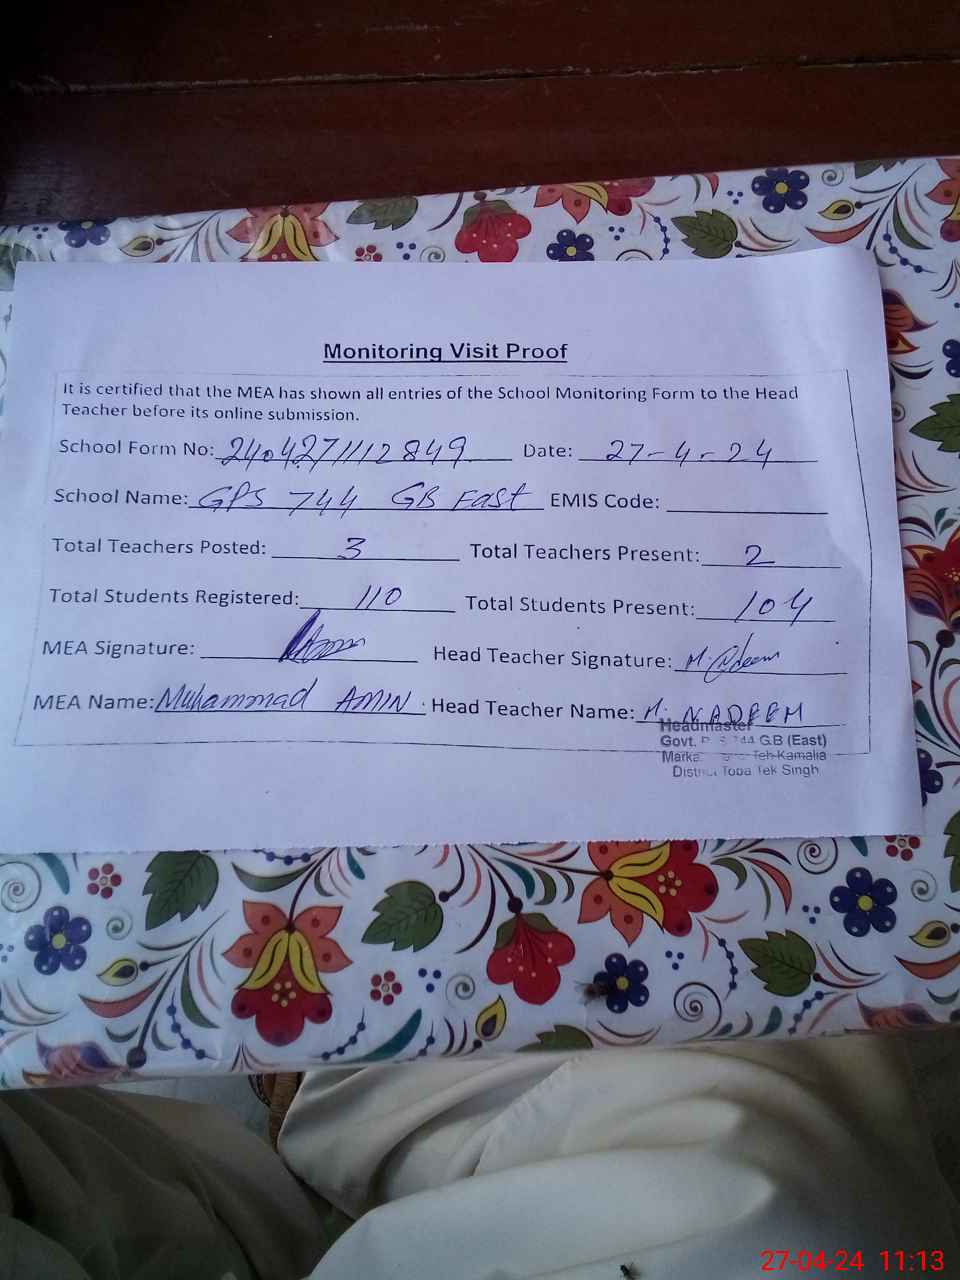 Monitoring Visit Proof
It is certified that the MEA has shown all entries of the School Monitoring Form to the Head
Teacher before its online submission.
School Form No: 2404271112849 Date: 27-4-24
School Name: GPS 744 GB East EMIS Code:
Total Teachers Posted: 3 Total Teachers Present: 2
Total Students Registered: 110 Total Students Present: 104
MEA Signature: Head Teacher Signature: M. Nadeem
MEA Name: Muhammad AMIN. Head Teacher Name: M. NADEEM
Headmaster
Govt. 744 G.B (East)
Teh-Kamalia
District Toba Tek Singh
27-04-24 11:13